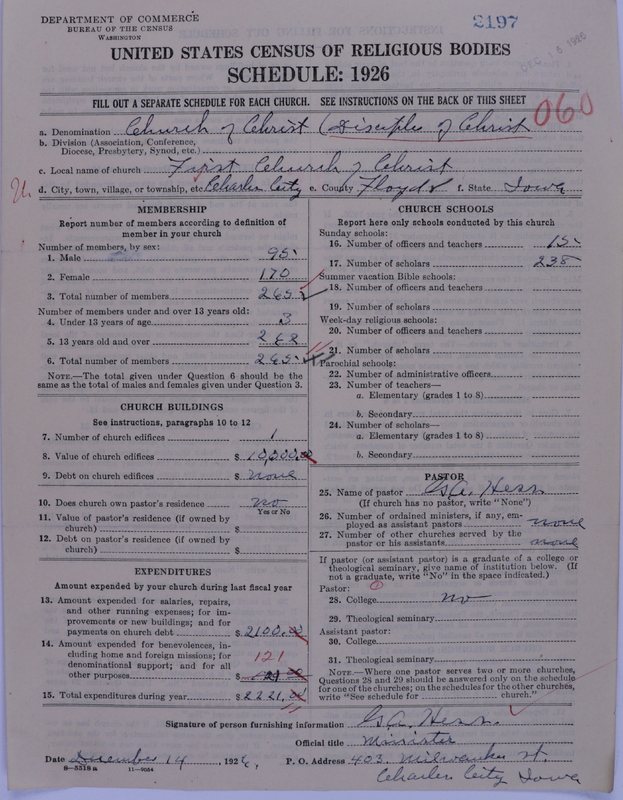 DEPARTMENT OF COMMERCE
BUREAU OF THE CENSUS
WASHINGTON
2197
DEC 16 1926
UNITED STATES CENSUS OF RELIGIOUS BODIES
SCHEDULE: 1926
FILL OUT A SEPARATE SCHEDULE FOR EACH CHURCH. SEE INSTRUCTIONS ON THE BACK OF THIS SHEET
060
a. Denomination Church of Christ (Disciples of Christ
b. Division (Association, Conference,
Diocese, Presbytery, Synod, etc.)
c. Local name of church First Church of Christ
d. City, town, village, or township, etc. Charles City e. County Floyd f. State Iowa
MEMBERSHIP
Report number of members according to definition of
member in your church
Number of members, by sex:
1. Male 95
2. Female 170
3. Total number of members 265
Number of members under and over 13 years old:
4. Under 13 years of age 3
5. 13 years old and over 262
6. Total number of members 265
NOTE.—The total given under Question 6 should be
same as the total of males and females given under Question 3.
CHURCH BUILDINGS
See instructions, paragraphs 10 to 12
7. Number of church edifices 1
8. Value of church edifices $ 10,000.00
9. Debt on church edifices $ none
10. Does church own pastor's residence no
Yes or No
11. Value of pastor's residence (if owned by
church) $
12. Debt on pastor's residence (if owned by
church) $
EXPENDITURES
Amount expended by your church during last fiscal year
13. Amount expended for salaries, repairs,
and other running expenses; for im-
provements or new buildings; and for
payments on church debt $ 2100.00
14. Amount expended for benevolences, in-
cluding home and foreign missions; for
denominational support; and for all 121
other purposes $
15. Total expenditures during year $ 2221.
CHURCH SCHOOLS
Report here only schools conducted by this church
Sunday schools:
16. Number of officers and teachers 15
17. Number of scholars 238
Summer vacation Bible schools:
18. Number of officers and teachers
19. Number of scholars
Week-day religious schools:
20. Number of officers and teachers
21. Number of scholars
Parochial schools:
22. Number of administrative officers
23. Number of teachers—
a. Elementary (grades 1 to 8)
b. Secondary
24. Number of scholars—
a. Elementary (grades 1 to 8)
b. Secondary
PASTOR
25. Name of pastor G. A. Hess
(If church has no pastor, write "None")
26. Number of ordained ministers, if any, em-
ployed as assistant pastors none
27. Number of other churches served by the
pastor or his assistants none
If pastor (or assistant pastor) is a graduate of a college or
theological seminary, give name of institution below. (If
not a graduate, write "No" in the space indicated.)
Pastor:
28. College no
29. Theological seminary
Assistant pastor:
30. College
31. Theological seminary
NOTE.—Where one pastor serves two or more churches,
Questions 28 and 29 should be answered only on the schedule
for one of the churches; on the schedules for the other churches,
write "See schedule for church."
Signature of person furnishing information G. A. Hess
Official title Minister
Date December 14, 1926. P. O. Address 403 Milwaukee st.
8—5518a 11—9054 Charles City Iowa